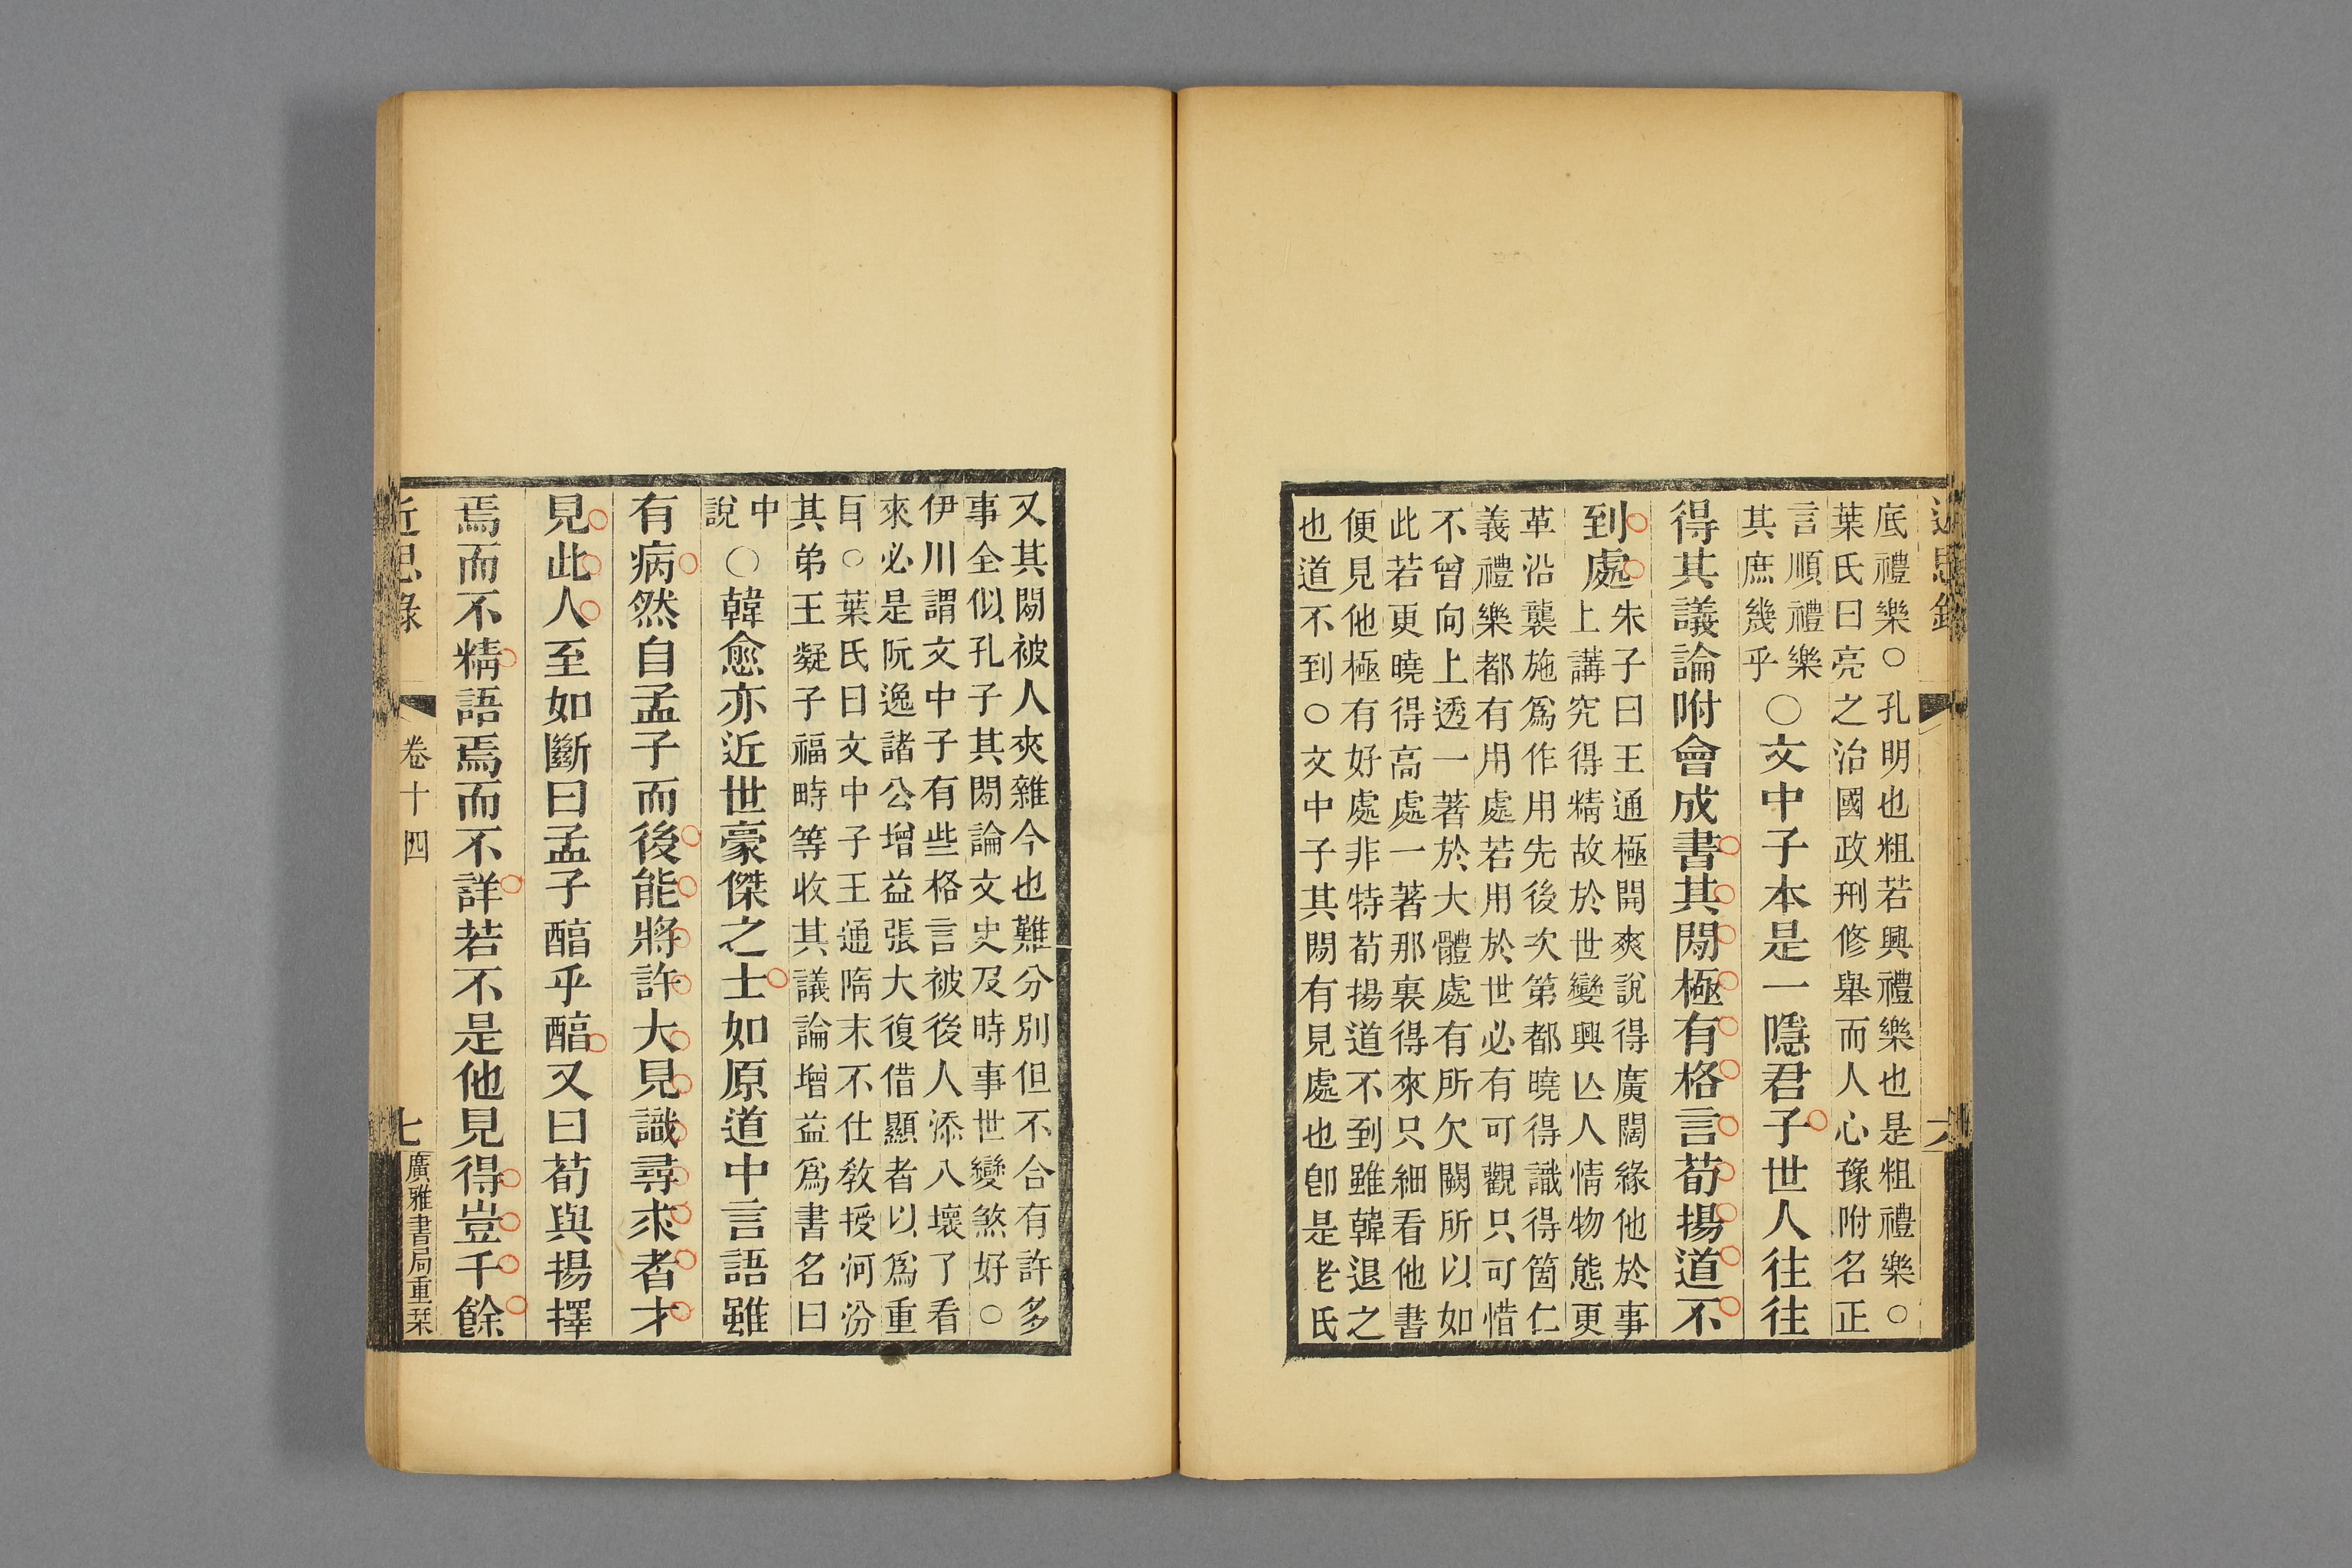 近思錄
六
底禮樂○孔明也粗若興禮樂也是粗禮樂○
葉氏曰亮之治國政刑修舉而人心豫附名正
言順禮樂
其庶幾乎
○文中子本是一隱君子世人往往
得其議論附會成書其閒極有格言荀揚道不
到處
朱子曰王通極開爽說得廣闊緣他於事
上講究得精故於世變興亾人情物態更
革沿襲施爲作用先後次第都曉得識得箇仁
義禮樂都有用處若用於世必有可觀只可惜
不曾向上透一著於大體處有所欠闕所以如
此若更曉得高處一著那裏得來只細看他書
便見他極有好處非特荀揚道不到雖韓退之
也道不到○文中子其閒有見處也卽是老氏
又其閒被人夾雜今也難分別但不合有許多
事全似孔子其閒論文史及時事世變煞好○
伊川謂文中子有些格言被後人添入壞了看
來必是阮逸諸公增益張大復借顯者以爲重
耳○葉氏曰文中子王通隋末不仕敎授河汾
其弟王凝子福畤等收其議論增益爲書名曰
中
說
○韓愈亦近世豪傑之士如原道中言語雖
有病然自孟子而後能將許大見識尋求者才
見此人至如斷曰孟子醕乎醕又曰荀與揚擇
焉而不精語焉而不詳若不是他見得豈千餘
近思錄
卷十四
七
廣雅書局重栞